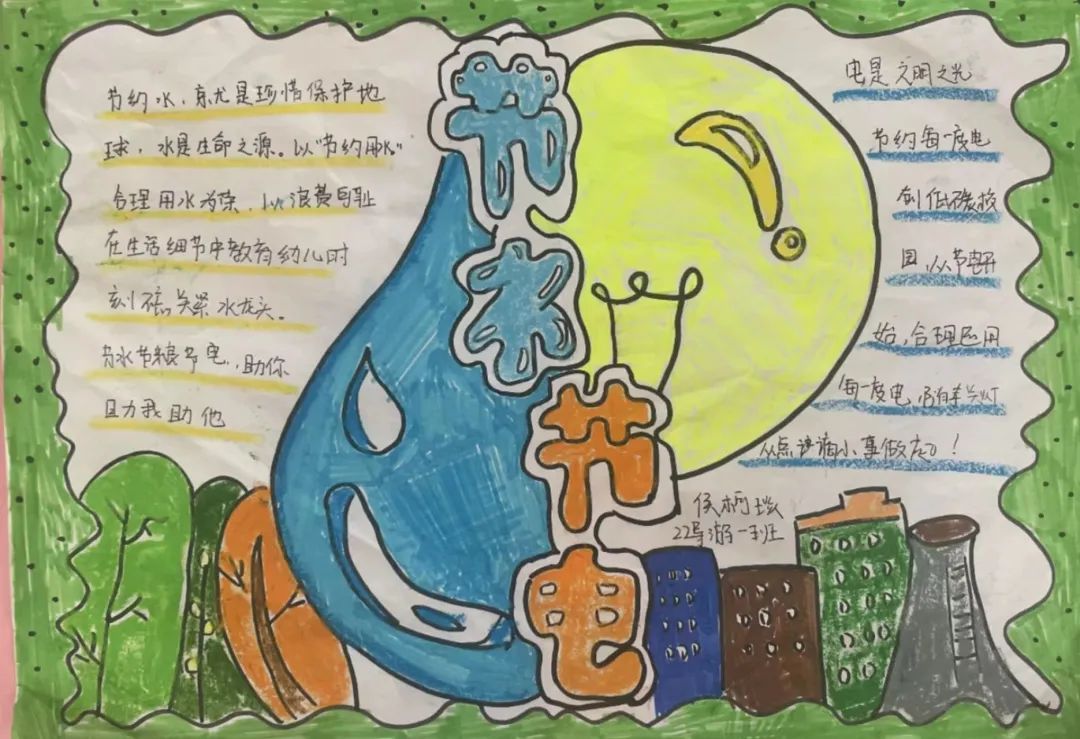 节水
节电
节约水，就是珍惜保护地
球，水是生命之源。以"节约用水"
合理用水为荣，以浪费为耻
在生活细节中教育幼儿时
刻 关紧水龙头。
节水节粮节电，助你
助我助他
电是文明之光
节约每一度电
创低碳校
园，从节电开
始，合理应用
每一度电
从点滴小事做起！
侯柯
22导游一班